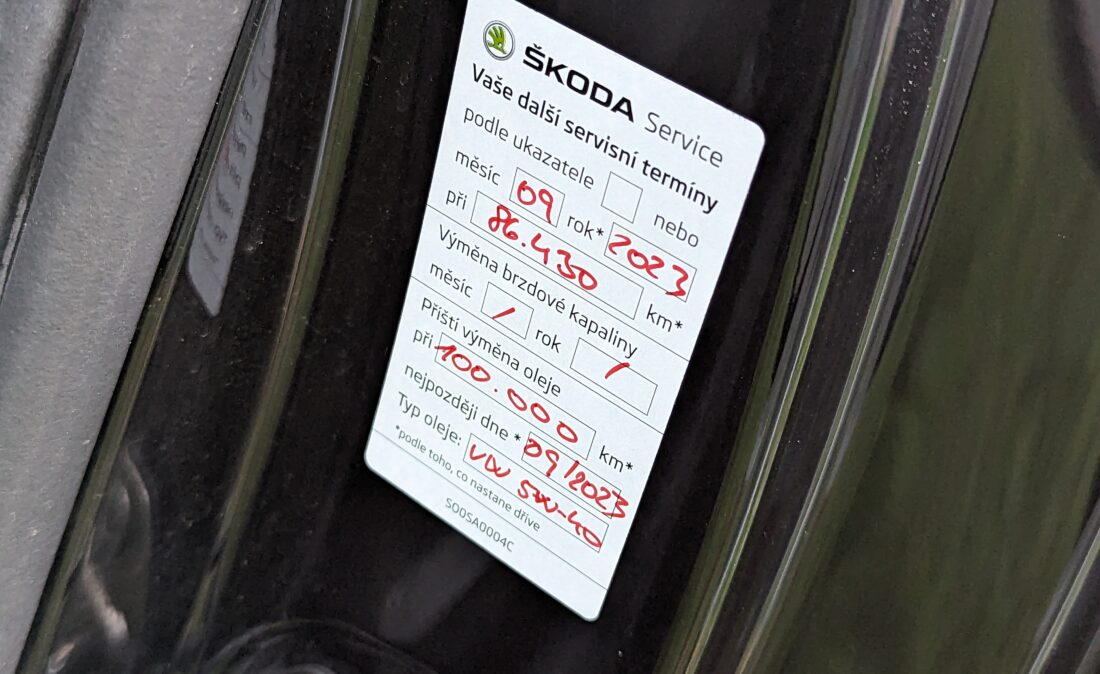 ŠKODA Service
Vaše další servisní termíny
podle ukazatele nebo
měsíc 09 rok* 2023
při 86.430 km*
Výměna brzdové kapaliny
měsíc / rok /
Příští výměna oleje
při 100.000 km*
nejpozději dne * 09/2023
Typ oleje: VW 5W-40
*podle toho, co nastane dříve
S00SA0004C